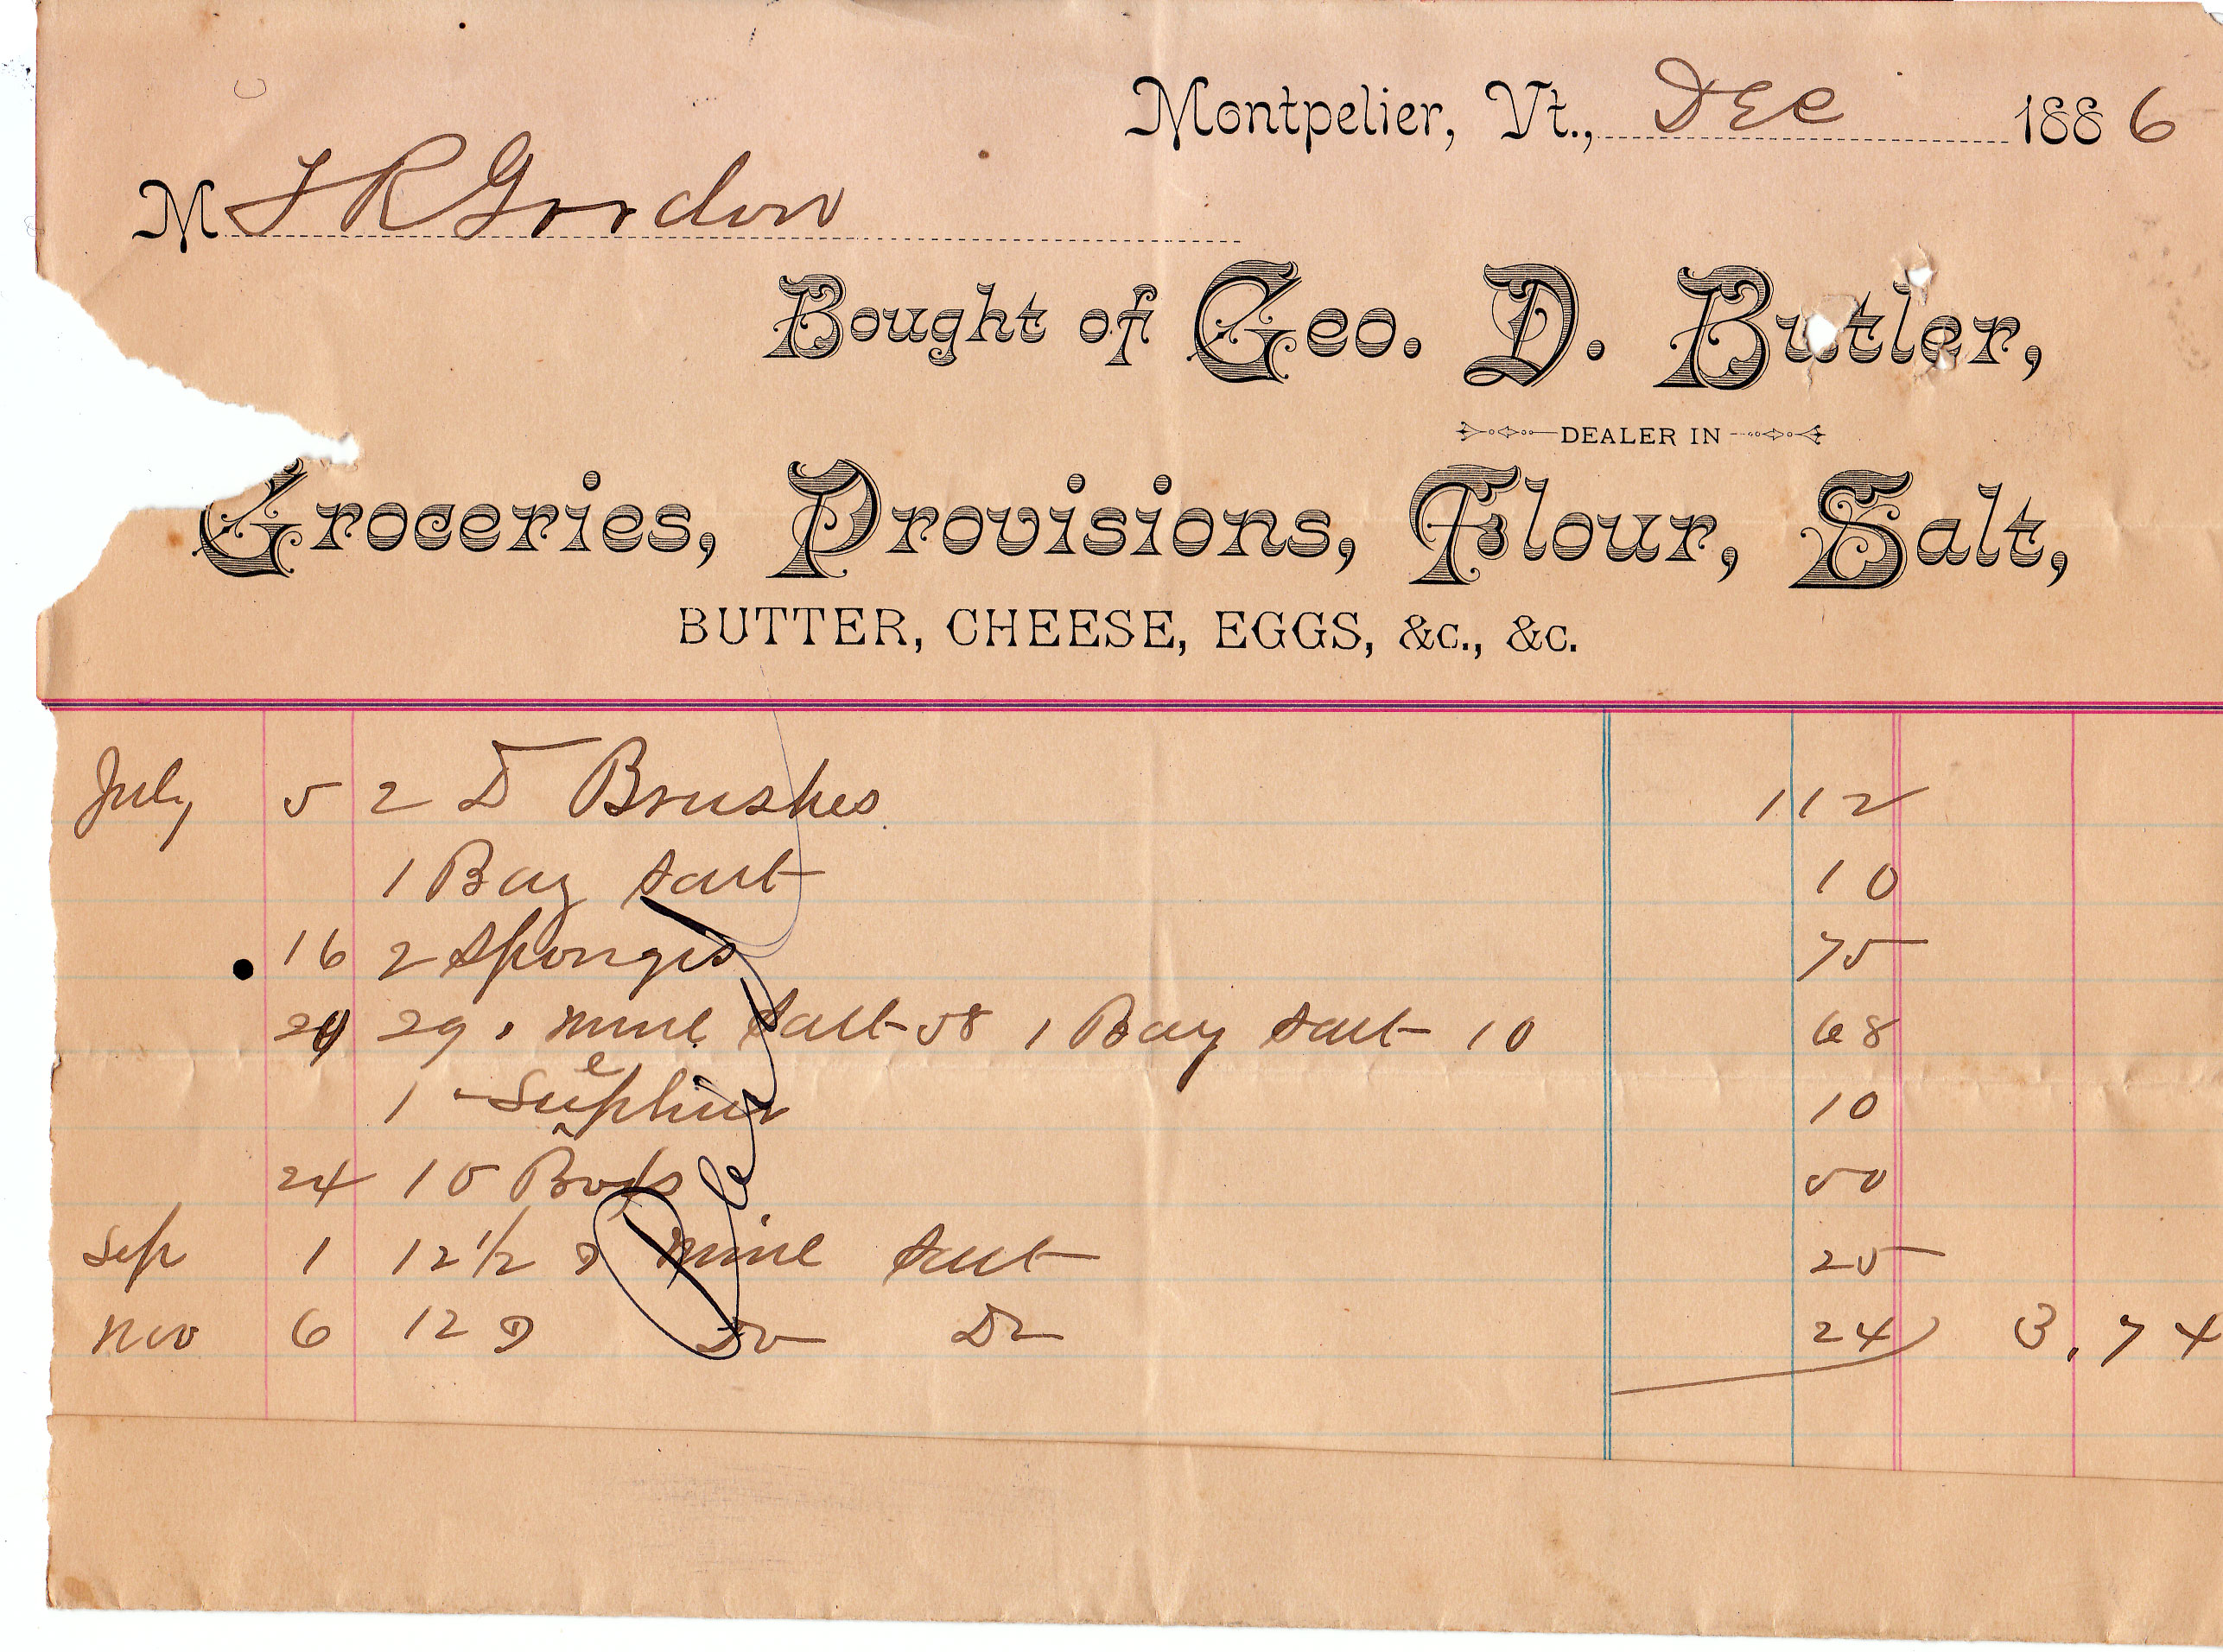 Montpelier, Vt., Dec 1886
M J R Gordon
Bought of Geo. D. Butler,
DEALER IN
Groceries, Provisions, Flour, Salt,
BUTTER, CHEESE, EGGS, &c., &c.
July 5 2 D Brushes 1 12
1 Bag Salt 10
16 2 Sponges 75
20 29 . Mine Salt 58 1 Bag Salt 10 68
1 Sulphur 10
24 10 50
Sep 1 12 1/2 Mine Salt 25
Nov 6 12 Do Do 24 3.74